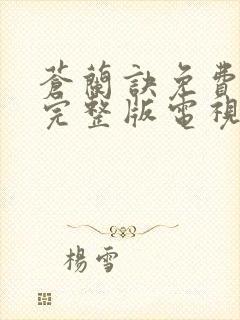 蒼蘭訣免費
完整版電視
楊雪